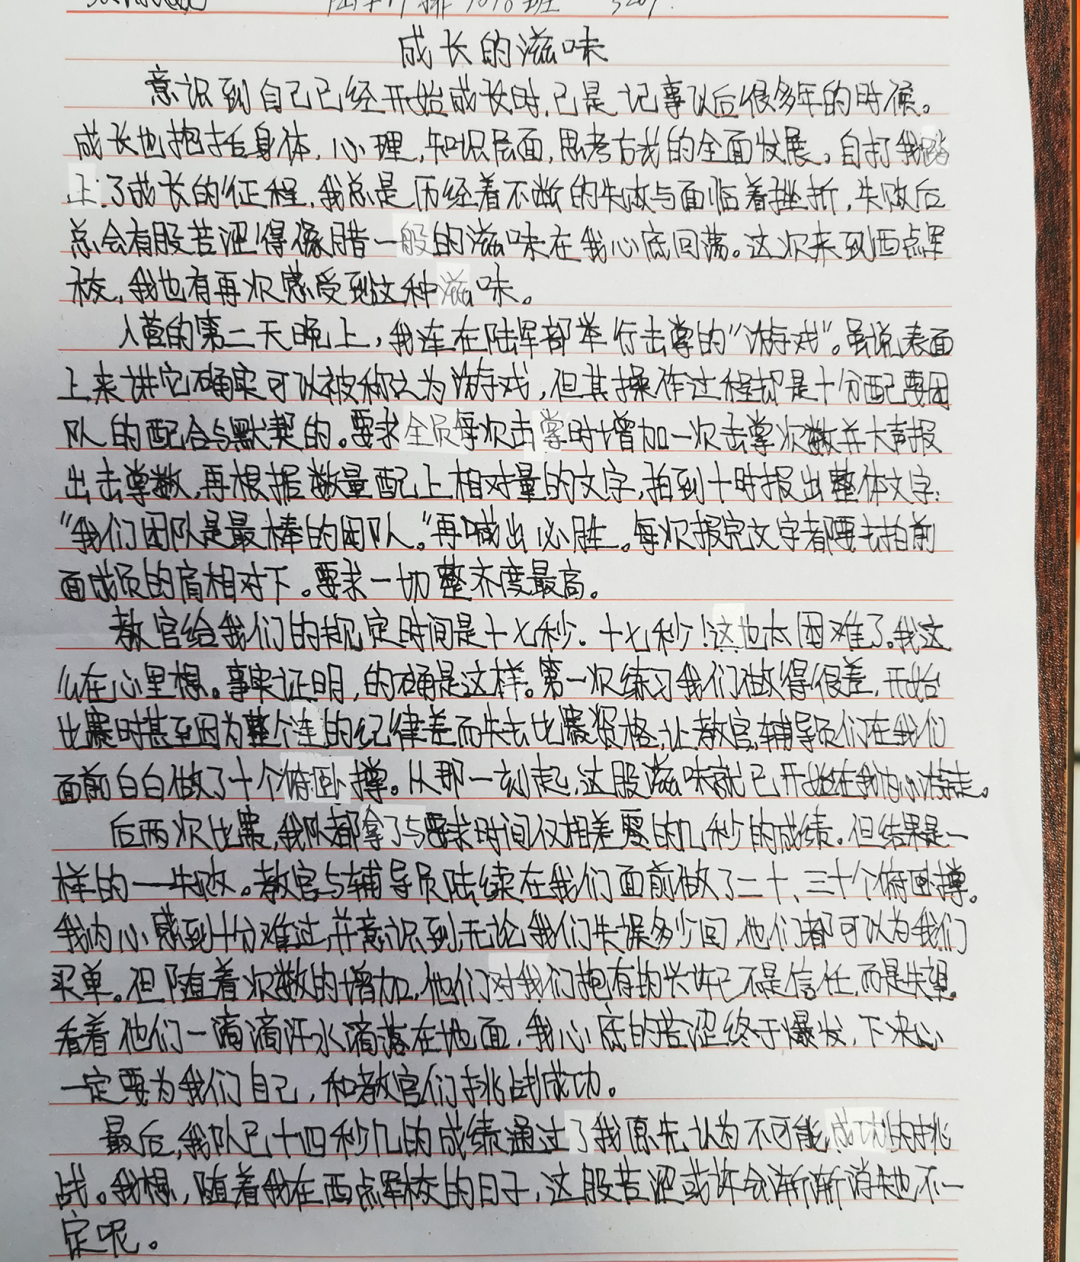 成长的滋味
意识到自己已经开始成长时,已是记事以后很多年的时候。
成长也抱括身体,心理,知识层面,思考方戈的全面发展。自打我踏
上了成长的征程,我总是历经着不断的失败与面临着挫折,失败后
总会有股苦涩得像腊一般的滋味在我心底回荡。这次来到西点军
校,我也有再次感受到这种滋味。
入营的第二天晚上,我连在陆军部举行击掌的“游戏”。虽说表面
上来讲它确实可以被称之为游戏,但其操作过程却是十分配要团
队的配合与默契的。要求全员每次击掌时增加一次击掌次数并大声报
出击掌数,再根据数量配上相对量的文字,拍到十时报出整体文字:
“我们团队是最棒的团队。”再喊出必胜。每次报完文字都要去拍前
面成员的肩相对下。要求一切整齐度最高。
教官给我们的规定时间是十七秒。十七秒!这也太困难了。我这
么在心里想。事实证明,的确是这样。第一次练习我们做得很差,开始
比赛时甚至因为整个连的纪律差而失去比赛资格,让教官,辅导员们在我们
面前白白做了十个俯卧撑。从那一刻起,这股滋味就已开始在我内心游走。
后两次比赛,我队都拿了与要求时间仅相差零的几秒的成绩。但结果是一
样的——失败。教官与辅导员陆续在我们面前做了二十、三十个俯卧撑。
我内心感到十分难过,并意识到无论我们失误多少回,他们都可以为我们
买单。但随着次数的增加,他们对我们抱有的兴许已不是信任,而是失望。
看着他们一滴滴汗水滴落在地面,我心底的苦涩终于爆发,下决心
一定要为我们自己,和教官们挑战成功。
最后,我队已十四秒几的成绩通过了我原先认为不可能成功的挑
战。我想,随着我在西点军校的日子,这股苦涩或许会渐渐消失也不一
定呢。